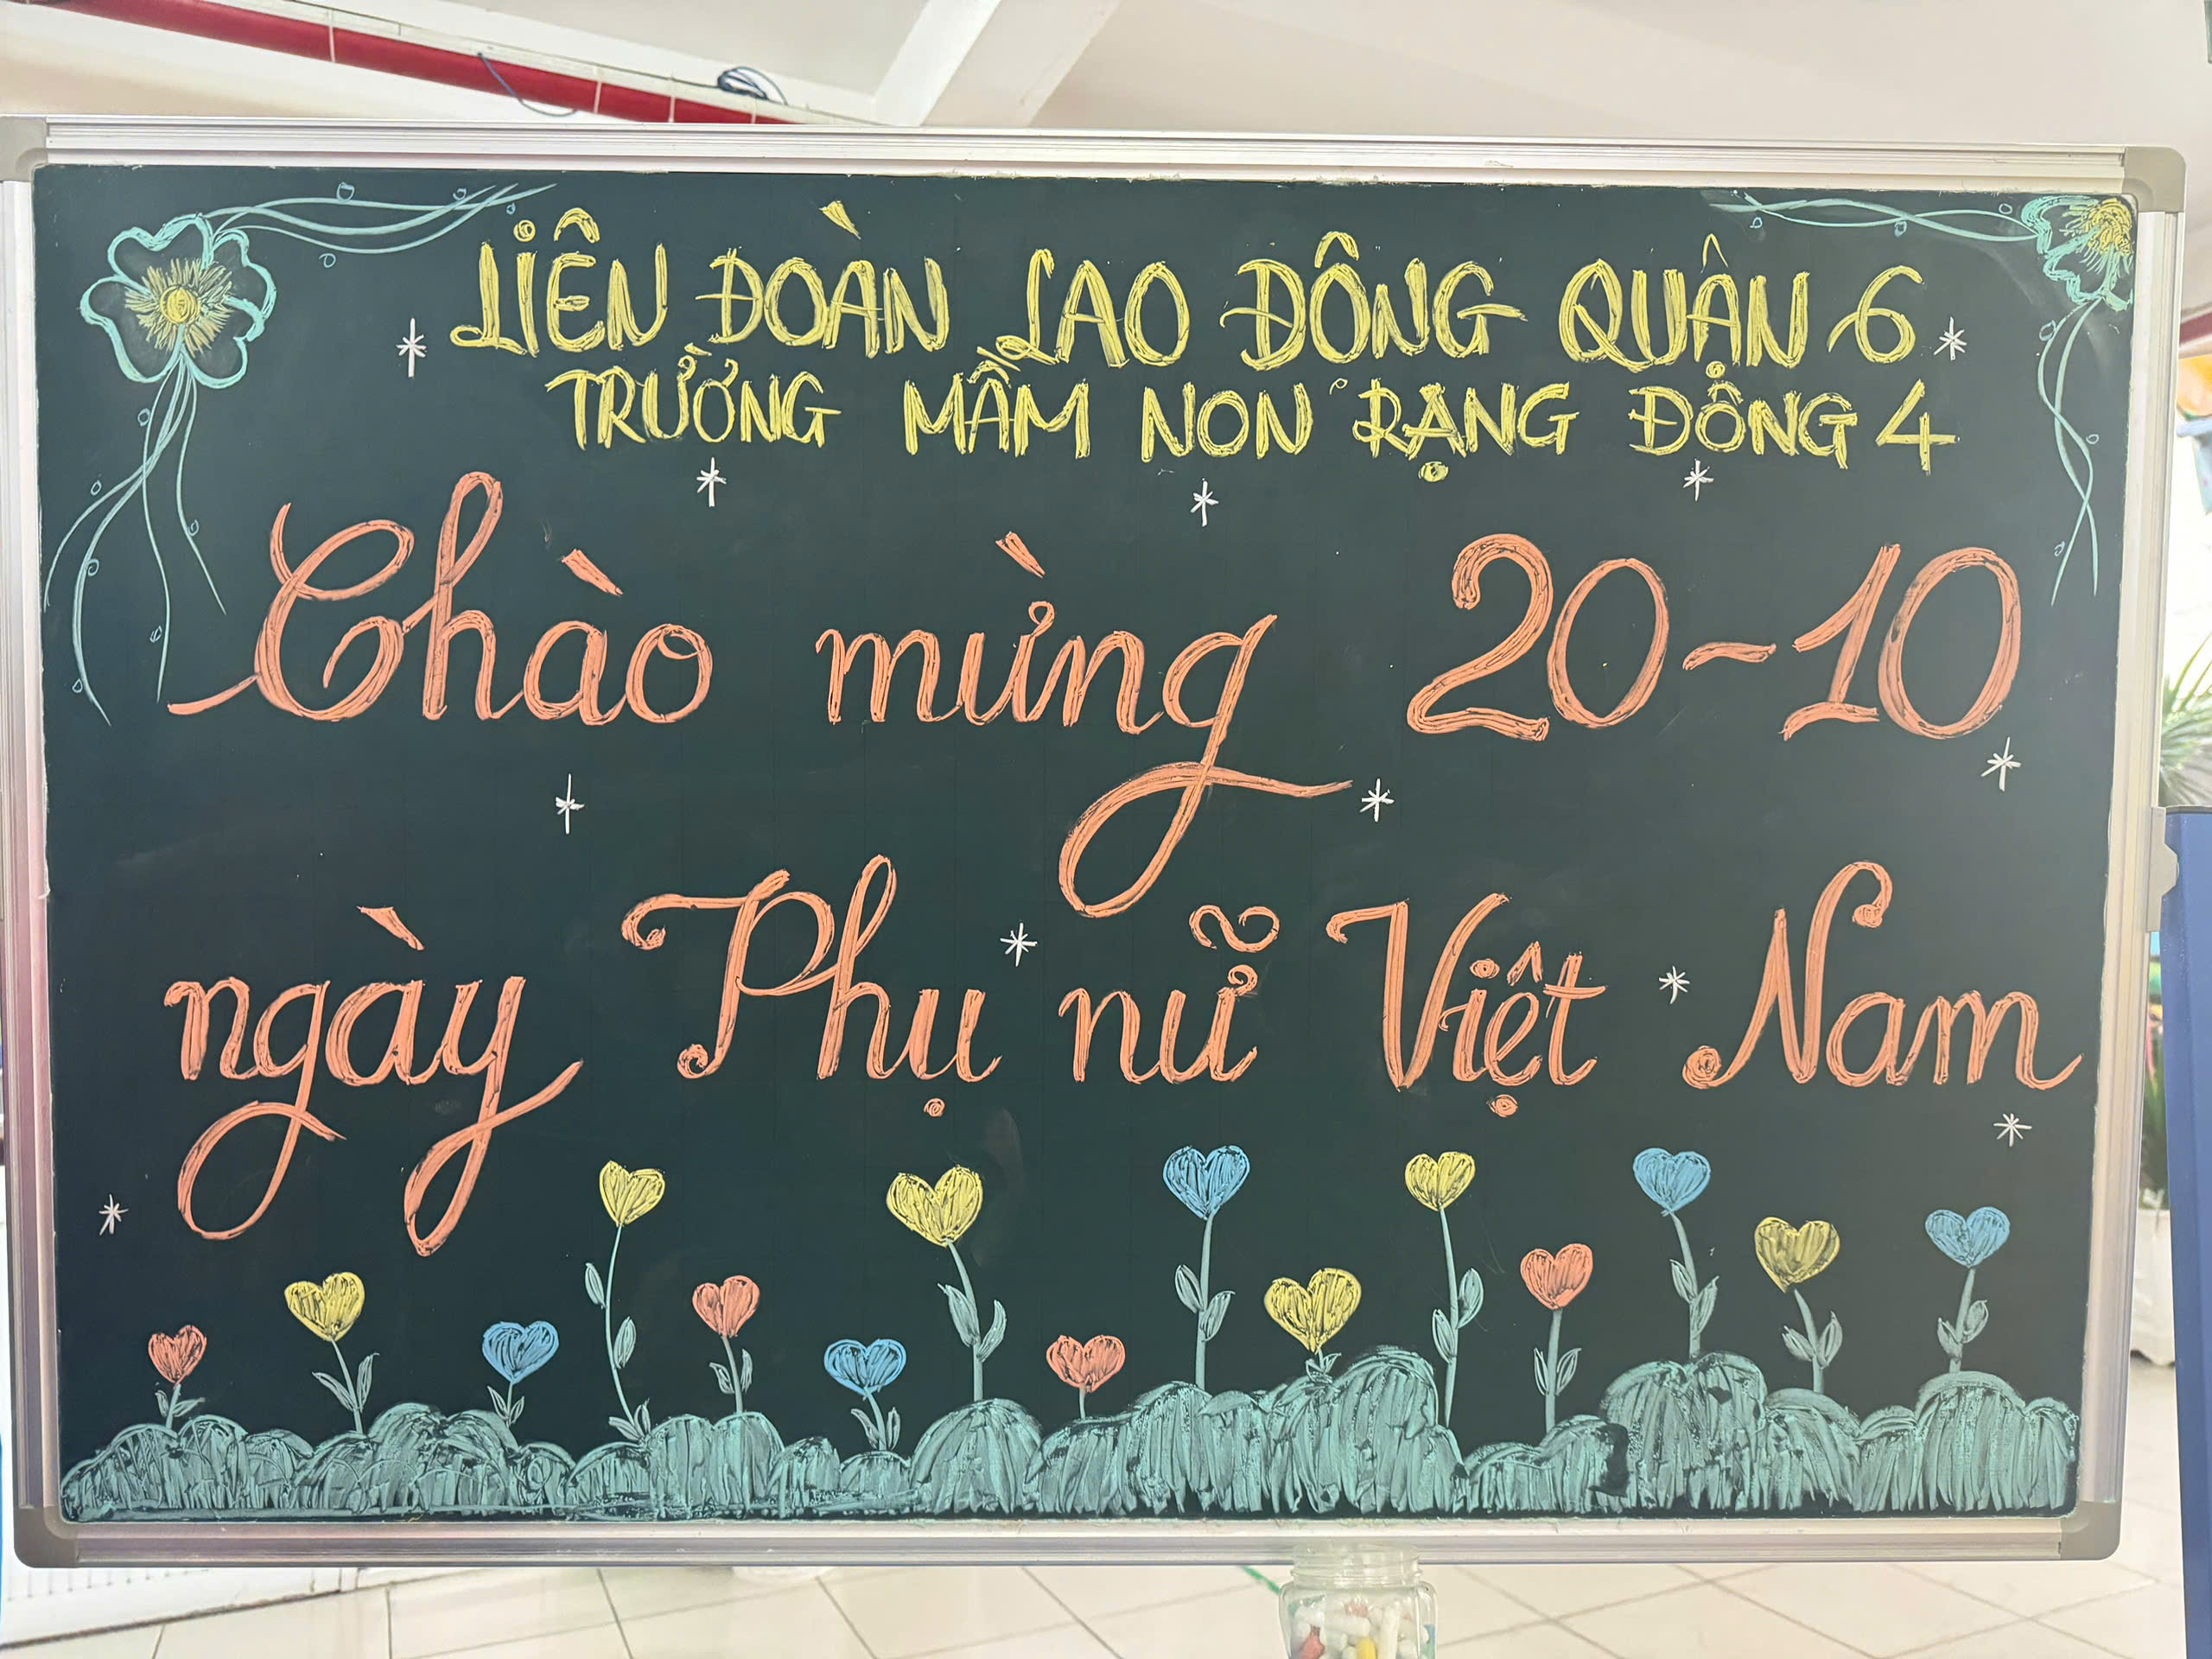 LIÊN ĐOÀN LAO ĐỘNG QUẬN 6
TRƯỜNG MẦM NON RẠNG ĐÔNG 4
Chào mừng 20-10
ngày Phụ nữ Việt Nam